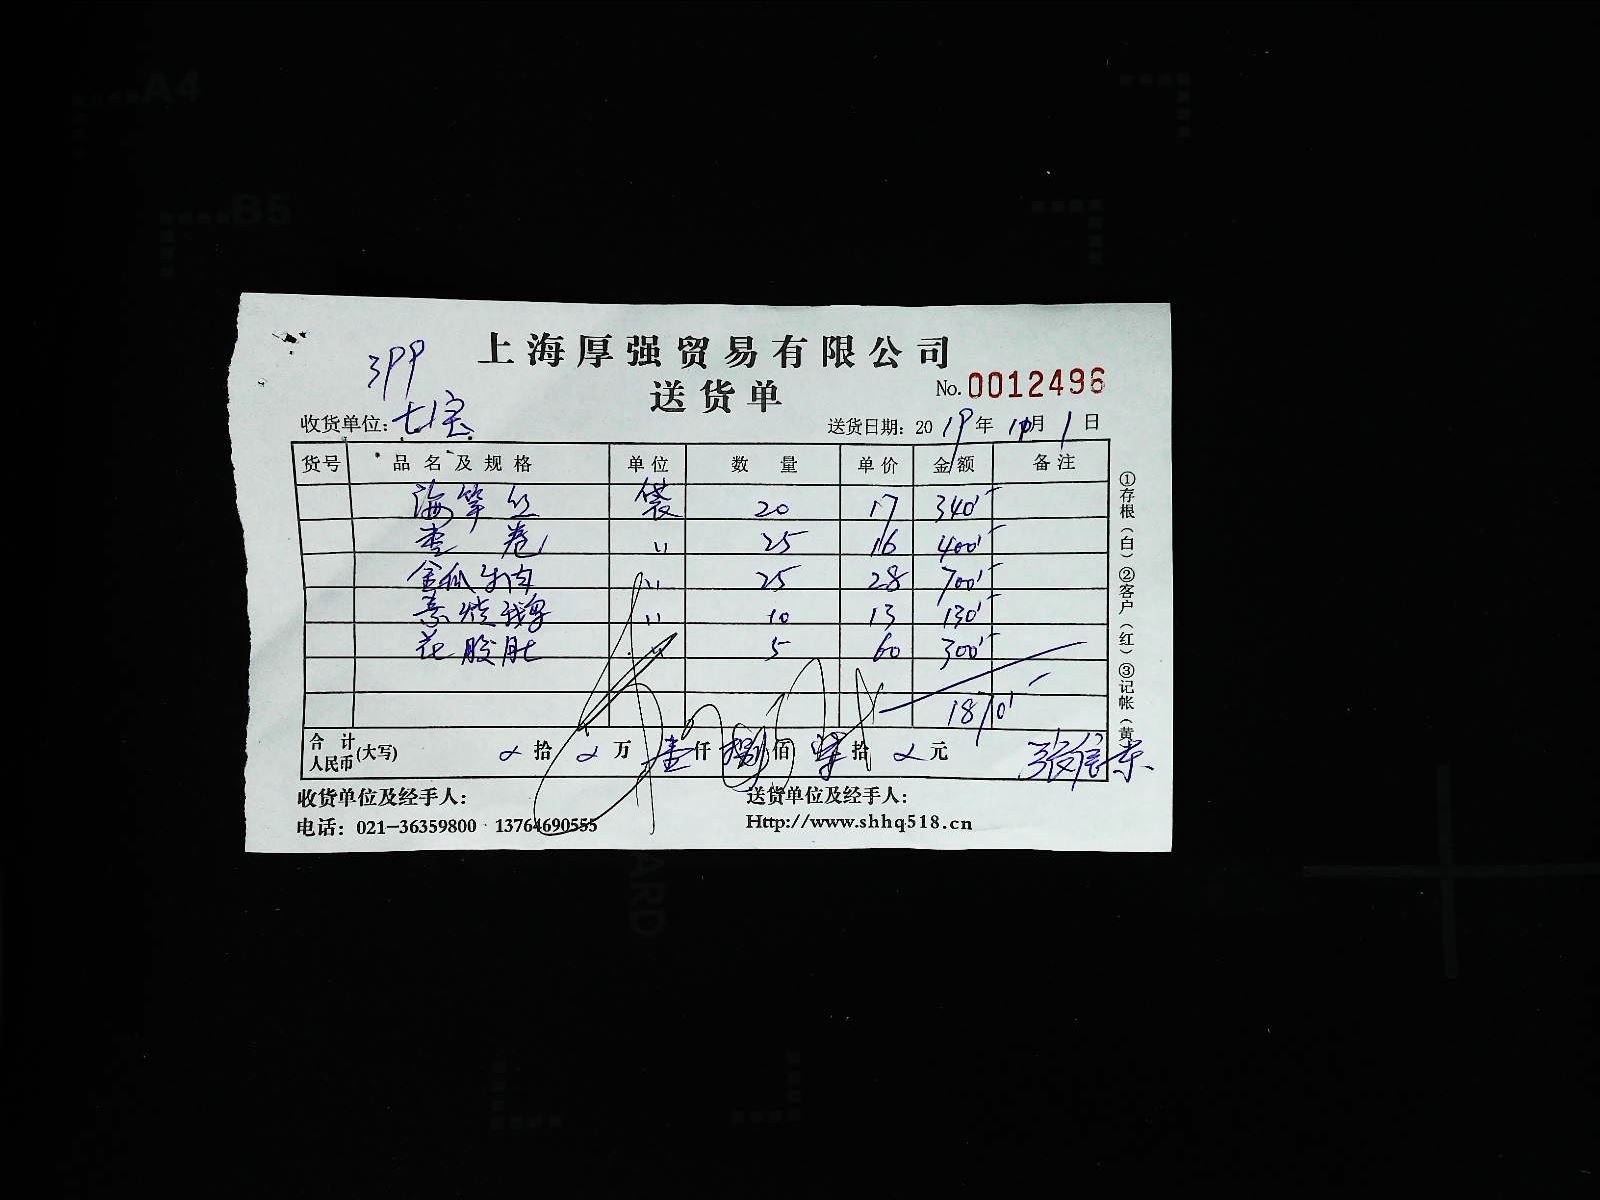 A4
B5
上海厚强贸易有限公司
399
送货单
No. 0012496
收货单位: 七宝
送货日期: 2019年 10月 1日
货号 品名及规格 单位 数量 单价 金额 备注
海笋丝 袋 20 17 340
枣卷 〃 25 16 400
金瓜牛肉 〃 25 28 700
素烧鹅 〃 10 13 130
花胶肚 〃 5 60 300
1870
合计人民币(大写) 拾 万 壹仟 捌佰 柒拾 元
收货单位及经手人: 送货单位及经手人:
电话: 021-36359800 13764690555 Http://www.shhq518.cn
①存根(白)②客户(红)③记帐(黄
ARD